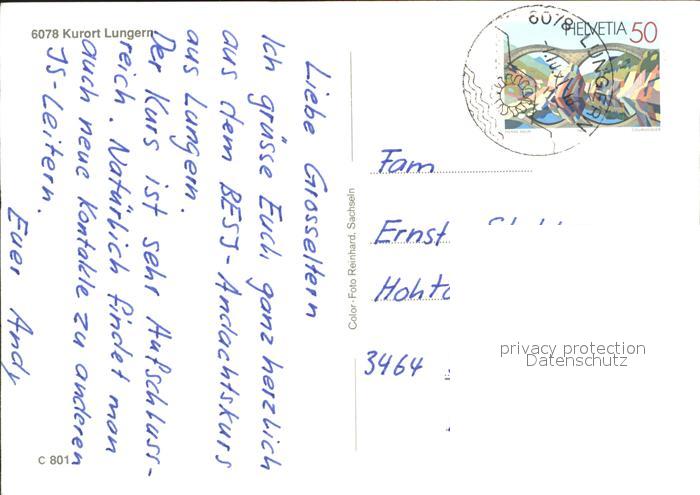 6078 Kurort Lungern
Liebe Grosseltern
Ich grüsse Euch ganz herzlich
aus dem BESJ-Andachtskurs
aus Lungern.
Der Kurs ist sehr Aufschluss-
reich. Natürlich findet man
auch neue Kontakte zu anderen
JS-Leitern.
Euer Andy
C 801
Color-Foto Reinhard, Sachseln
HELVETIA 50
6078 LUNGERN
Fam
Ernst
3464
privacy protection
Datenschutz